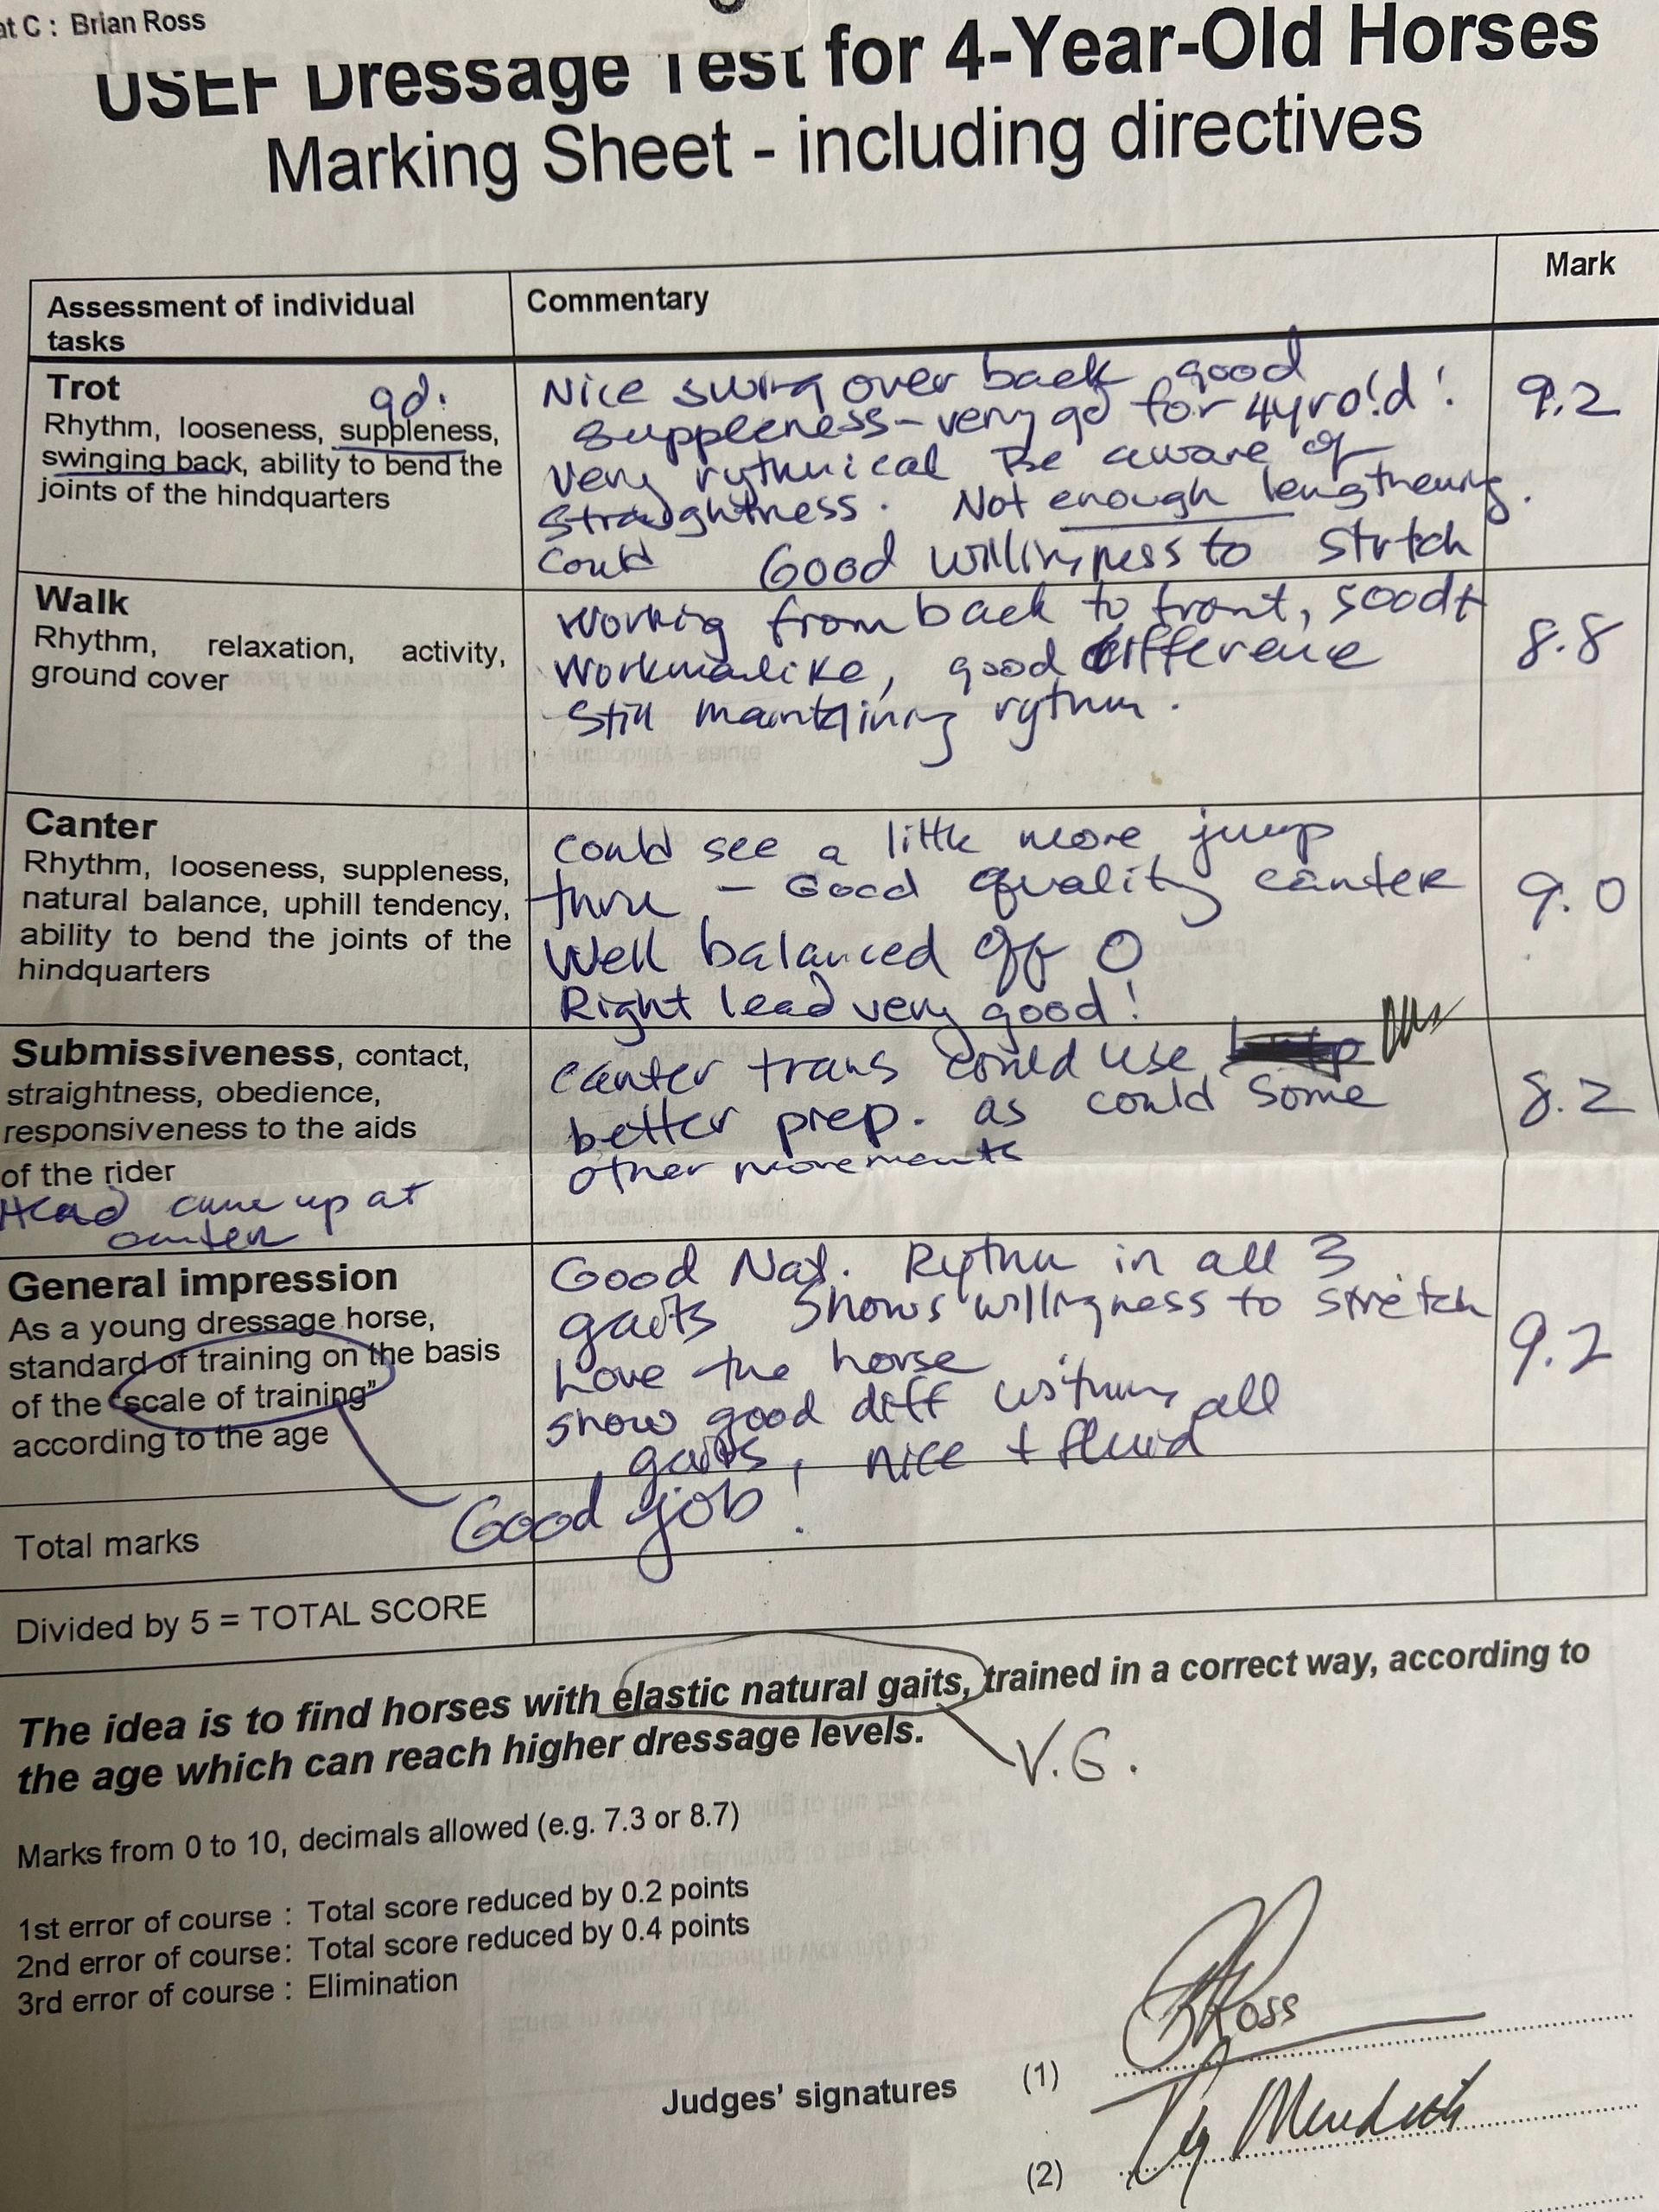 at C : Brian Ross
USEF Dressage Test for 4-Year-Old Horses
Marking Sheet - including directives
Assessment of individual
tasks
Commentary
Mark
Trot
gd.
Rhythm, looseness, suppleness,
swinging back, ability to bend the
joints of the hindquarters
Nice swing over back good
suppleness - very gd for 4yrold!
very rythmical Be aware of
straightness. Not enough lengthening.
Could Good willingness to stretch
9.2
Walk
Rhythm, relaxation, activity,
ground cover
Working from back to front,
Workmanlike, good difference
Still maintaining rythm.
8.8
Canter
Rhythm, looseness, suppleness,
natural balance, uphill tendency,
ability to bend the joints of the
hindquarters
Could see a little more jump
thru - Good quality canter
Well balanced off O
Right lead very good!
9.0
Submissiveness, contact,
straightness, obedience,
responsiveness to the aids
of the rider
Head came up at
canter
canter trans could use
better prep. as could some
other movements
8.2
General impression
As a young dressage horse,
standard of training on the basis
of the "scale of training"
according to the age
Good Nat. Rythm in all 3
gaits Shows willingness to stretch
Love the horse
show good diff within all
gaits, nice + fluid
9.2
Good job!
Total marks
Divided by 5 = TOTAL SCORE
The idea is to find horses with elastic natural gaits, trained in a correct way, according to
the age which can reach higher dressage levels.
V.G.
Marks from 0 to 10, decimals allowed (e.g. 7.3 or 8.7)
1st error of course : Total score reduced by 0.2 points
2nd error of course: Total score reduced by 0.4 points
3rd error of course : Elimination
Judges' signatures
(1)
BRoss
(2)